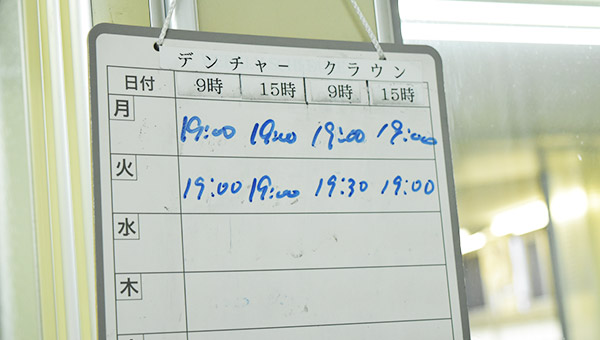 デンチャー クラウン
日付 9時 15時 9時 15時
月 19:00 19:00 19:00 19:00
火 19:00 19:00 19:30 19:00
水
木